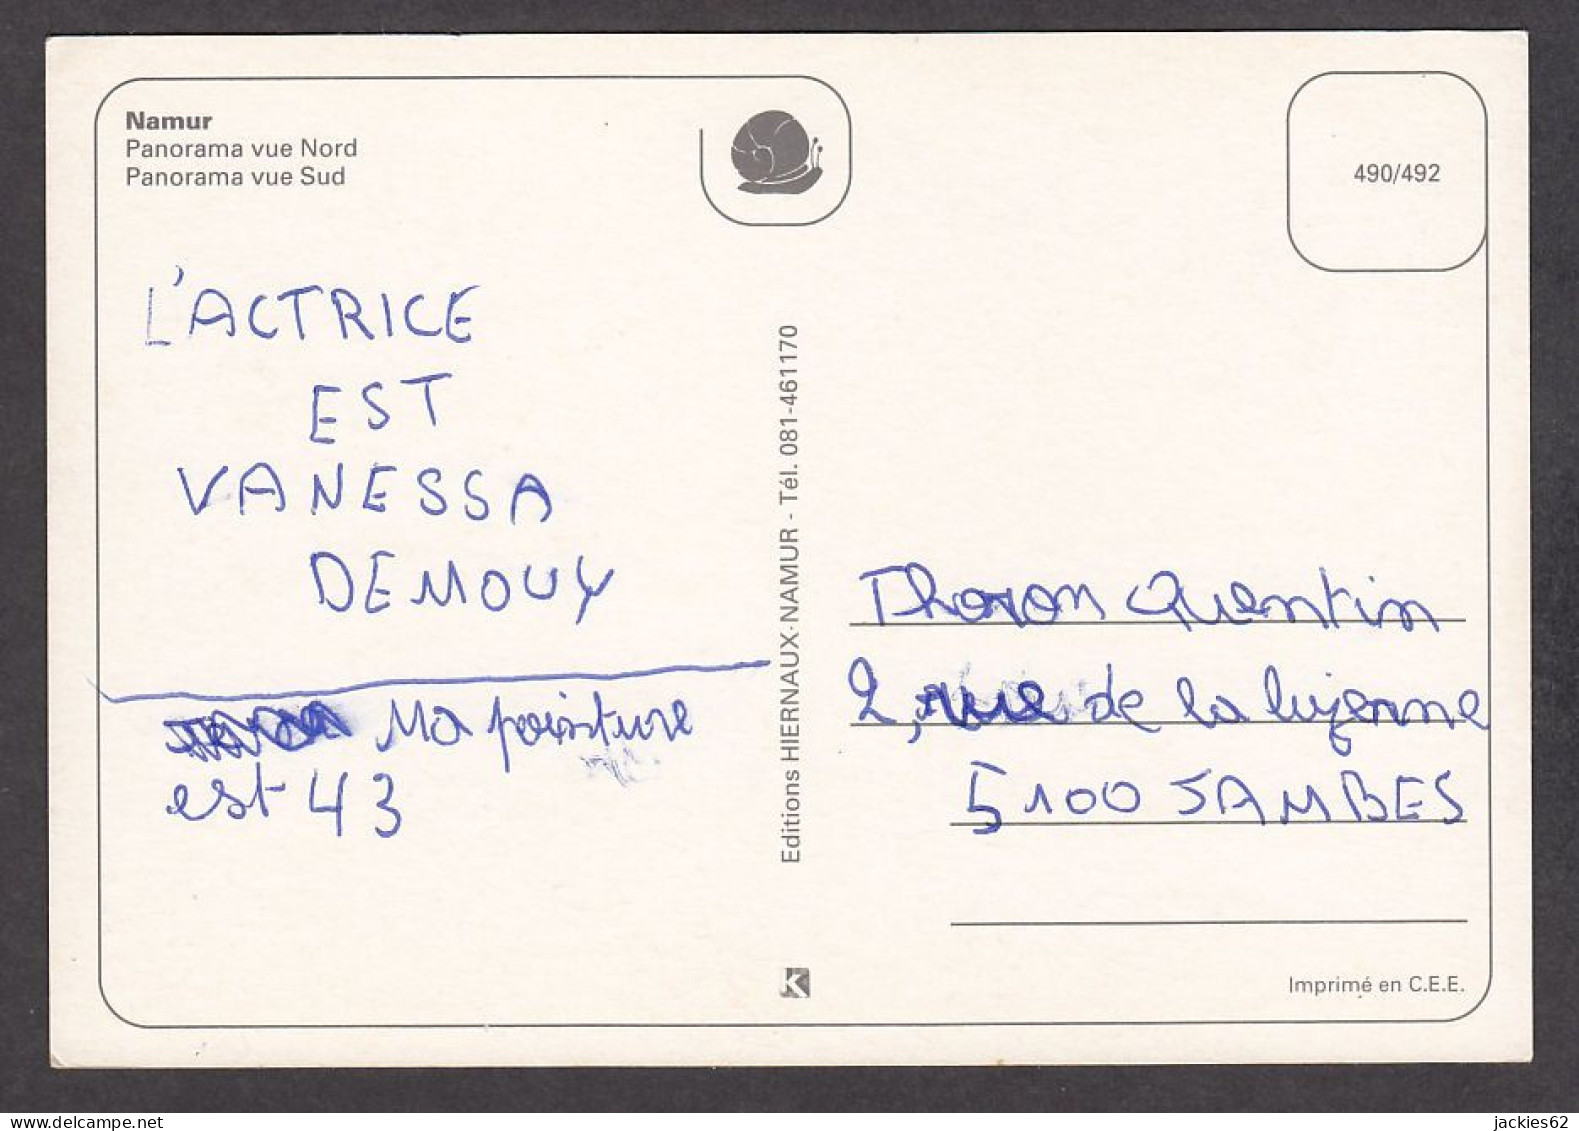 Namur
Panorama vue Nord
Panorama vue Sud
490/492
L'ACTRICE
EST
VANESSA
DEMOUY
Ma pointure
est 43
Editions HIERNAUX-NAMUR - Tél. 081-461170
Thoron Quentin
2, rue de la luzerne
5100 JAMBES
K
Imprimé en C.E.E.
www.delcampe.net
jackies62